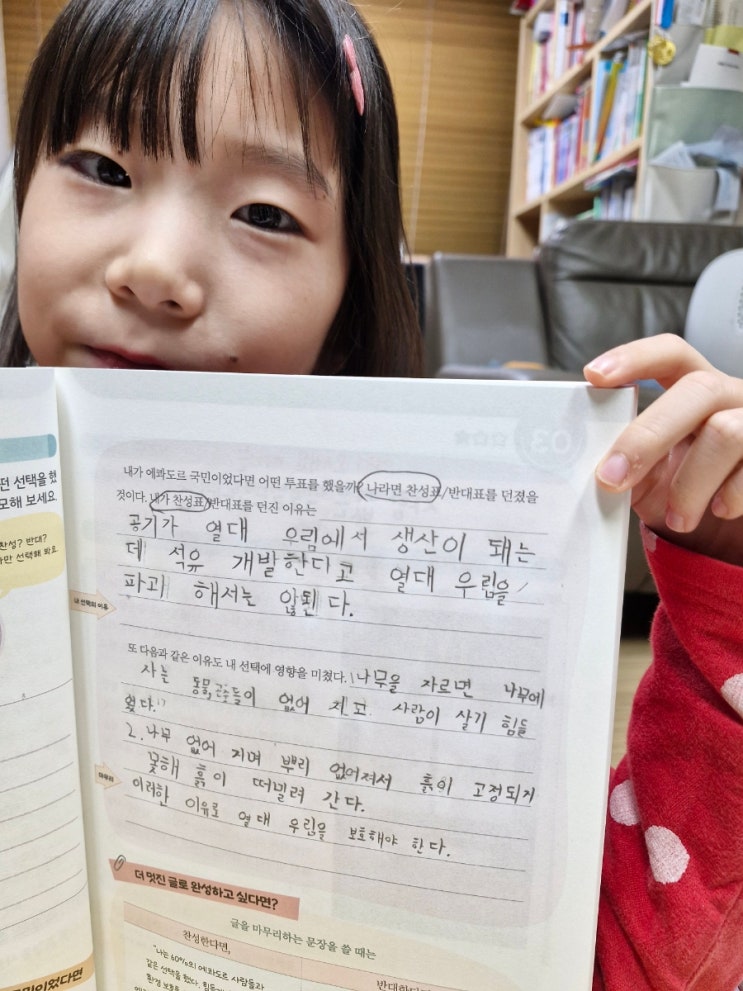 03
떤 선택을 했
모해 보세요.
찬성? 반대?
만 선택해 봐요
내가 에콰도르 국민이었다면 어떤 투표를 했을까? 나라면 찬성표/반대표를 던졌을
것이다. 내가 찬성표/반대표를 던진 이유는
공기가 열대 우림에서 생산이 돼는
데 석유 개발한다고 열대 우림을
파괴 해서는 않된다.
내 선택의 이유
또 다음과 같은 이유도 내 선택에 영향을 미쳤다. 1나무을 자르면 나무에
사는 동물,곤충들이 없어 지고 사람이 살기 힘들
2.나무 없어 지며 뿌리 없어져서 흙이 고정되게
못해 흙이 떠밀려 간다.
마무리
이러한 이유로 열대 우림을 보호해야 한다.
더 멋진 글로 완성하고 싶다면?
글을 마무리하는 문장을 쓸 때는
찬성한다면,
반대한다
"나는 60%의 에콰도르 사람들과
같은 선택을 했다. 힘들
환경 보호를
국민이었다면